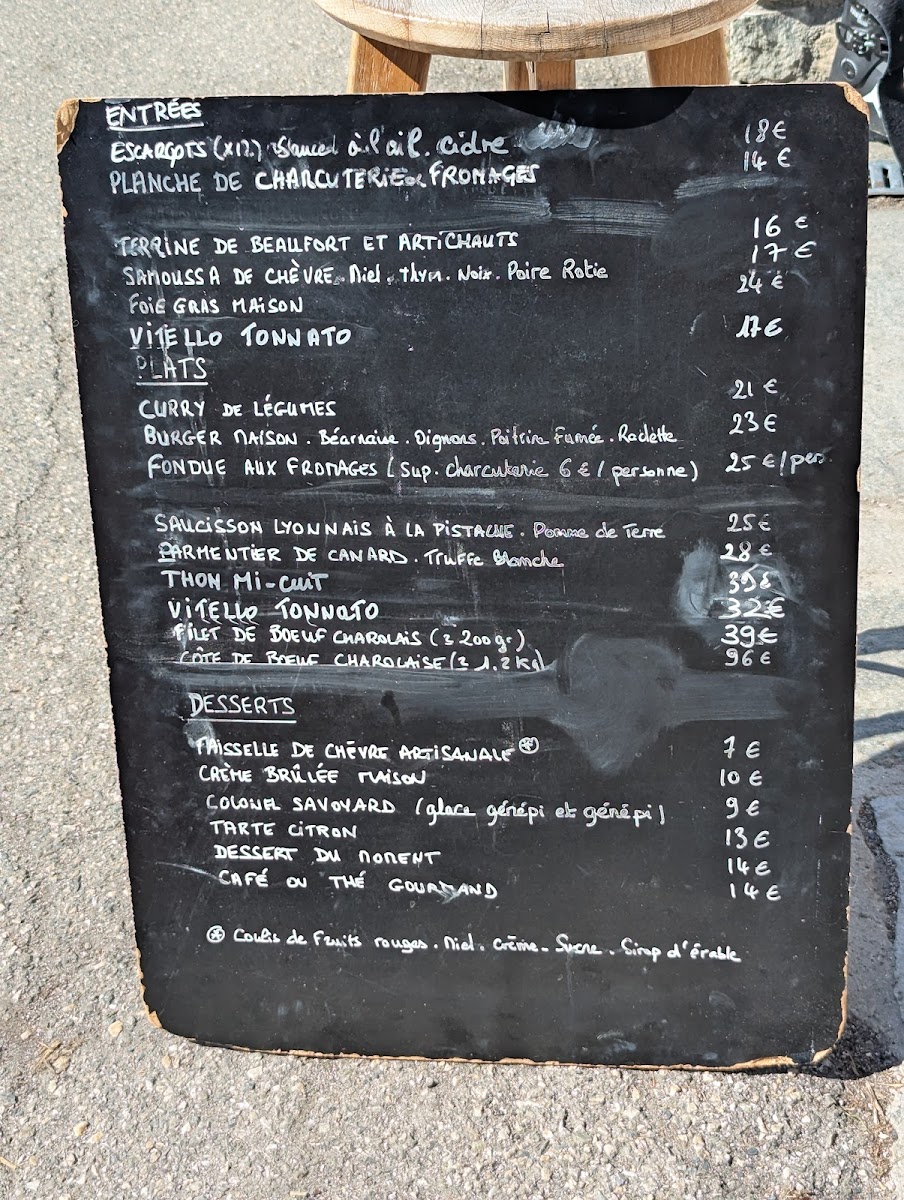 ENTRÉES
ESCARGOTS (X12) sauce à l'ail. cidre 18€
PLANCHE DE CHARCUTERIE & FROMAGES 14€
TERRINE DE BEAUFORT ET ARTICHAUTS 16€
SAMOUSSA DE CHÈVRE. Miel. Thym. Noix. Poire Rotie 17€
FOIE GRAS MAISON 24€
VITELLO TONNATO 17€
PLATS
CURRY DE LÉGUMES 21€
BURGER MAISON. Béarnaise. Oignons. Poitrine Fumée. Raclette 23€
FONDUE AUX FROMAGES (Sup. charcuterie 6€/personne) 25€/pers
SAUCISSON LYONNAIS À LA PISTACHE. Pomme de Terre 25€
PARMENTIER DE CANARD. Truffe Blanche 28€
THON MI-CUIT
VITELLO TONNATO 32€
FILET DE BOEUF CHAROLAIS (± 200gr) 39€
CÔTE DE BOEUF CHAROLAISE (± 1.2Kg) 96€
DESSERTS
FAISSELLE DE CHÈVRE ARTISANALE ⊛ 7€
CRÈME BRÛLÉE MAISON 10€
COLONEL SAVOYARD (glace génépi et génépi) 9€
TARTE CITRON 13€
DESSERT DU MOMENT 14€
CAFÉ OU THÉ GOURMAND 14€
⊛ Coulis de Fruits rouges. Miel. Crème. Sucre. Sirop d'érable